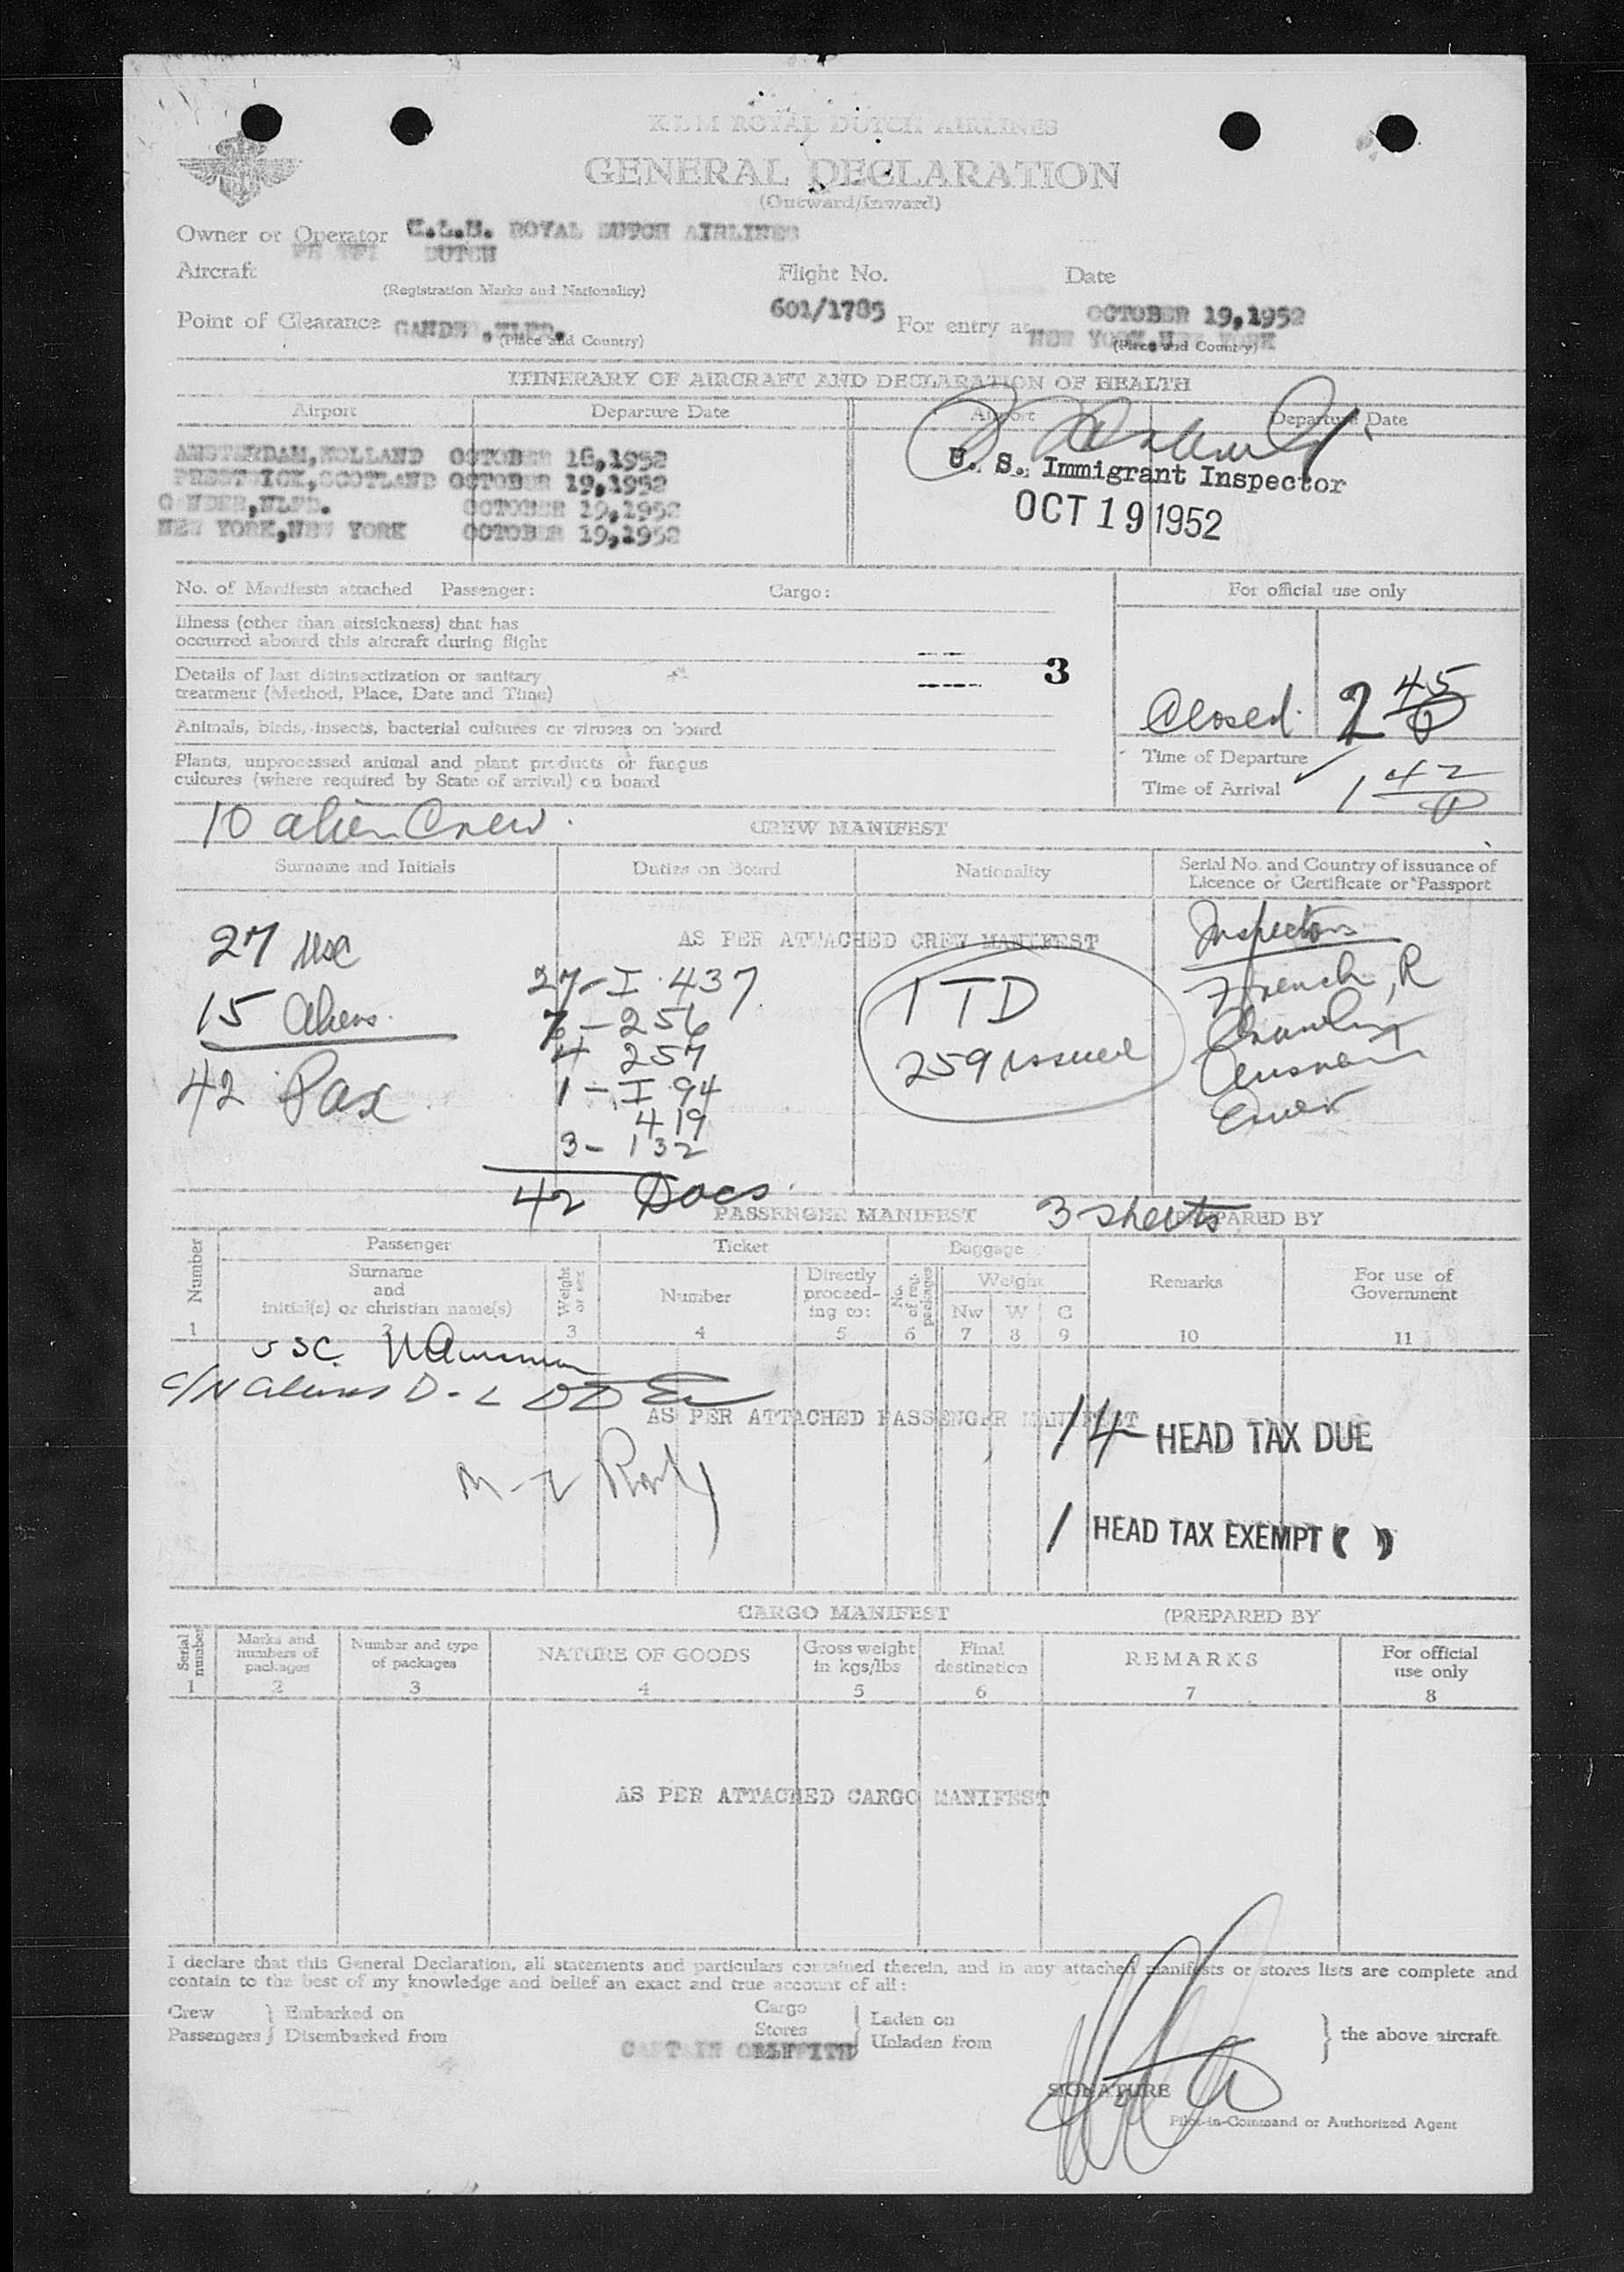 K.L.M ROYAL DUTCH AIRLINES
GENERAL DECLARATION
(Outward/Inward)
Owner or Operator K.L.M. ROYAL DUTCH AIRLINES
DUTCH
Aircraft Flight No. Date
(Registration Marks and Nationality)
601/1785 OCTOBER 19,1952
Point of Clearance GANDER,NLFD. For entry at NEW YORK,NEW YORK
(Place and Country) (Place and Country)
ITINERARY OF AIRCRAFT AND DECLARATION OF HEALTH
Airport Departure Date Airport Departure Date
AMSTERDAM,HOLLAND OCTOBER 18,1952
PRESTWICK,SCOTLAND OCTOBER 19,1952
GANDER,NLFD. OCTOBER 19,1952
NEW YORK,NEW YORK OCTOBER 19,1952
U. S. Immigrant Inspector
OCT 19 1952
No. of Manifests attached Passenger: Cargo: For official use only
Illness (other than airsickness) that has
occurred aboard this aircraft during flight
Details of last disinsectization or sanitary
treatment (Method, Place, Date and Time)
3
Closed. 2 45 P
Animals, birds, insects, bacterial cultures or viruses on board
Time of Departure
Plants, unprocessed animal and plant products or fungus
cultures (where required by State of arrival) on board
Time of Arrival 1 42 P
10 alien Crew. CREW MANIFEST
Surname and Initials Duties on Board Nationality Serial No. and Country of issuance of
Licence or Certificate or Passport
AS PER ATTACHED CREW MANIFEST
Inspectors
French, R
27 USC
15 Aliens.
42 Pax.
27-I 437
7-256
4 257
1-I 94
419
3-132
42 Docs.
1 TD
259 issued
PASSENGER MANIFEST 3 sheets (PREPARED BY
Number Passenger Ticket Baggage Remarks For use of
Government
Surname
and
initial(s) or christian name(s)
Weight
or sex
Number Directly
proceed-
ing to:
No.
of reg.
packages
Weight
Nw W C
1 2 3 4 5 6 7 8 9 10 11
USC.
AS PER ATTACHED PASSENGER MANIFEST
14 HEAD TAX DUE
1 HEAD TAX EXEMPT ( )
CARGO MANIFEST (PREPARED BY
Serial
number
Marks and
numbers of
packages
Number and type
of packages
NATURE OF GOODS
Gross weight
in kgs/lbs
Final
destination
REMARKS
For official
use only
1 2 3 4 5 6 7 8
AS PER ATTACHED CARGO MANIFEST
I declare that this General Declaration, all statements and particulars contained therein, and in any attached manifests or stores lists are complete and
contain to the best of my knowledge and belief an exact and true account of all:
Crew } Embarked on Cargo } Laden on
Passengers } Disembarked from Stores } Unladen from } the above aircraft.
CAPTAIN
SIGNATURE
Pilot-in-Command or Authorized Agent